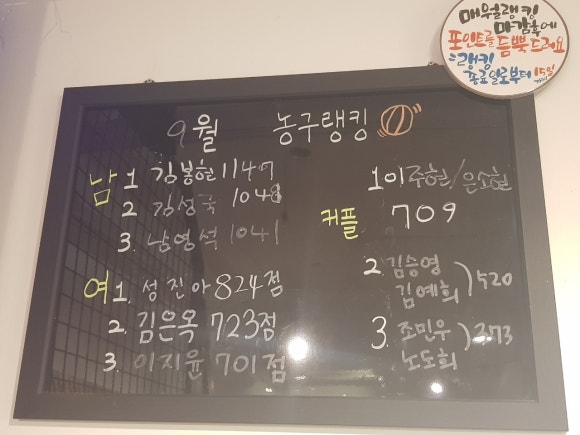 매월랭킹
마감후에
포인트를 듬뿍드려요
랭킹
종료일로부터 15일
9월 농구랭킹
남 1 김봉현 1147
2 김성국 1048
3. 남영석 1041
여 1. 성진아 824점
2. 김은옥 723점
3. 이지윤 701점
1 이주현/은소현
커플 709
2 김승영 김예희 ) 520
3. 조민우 노도희 ) 373